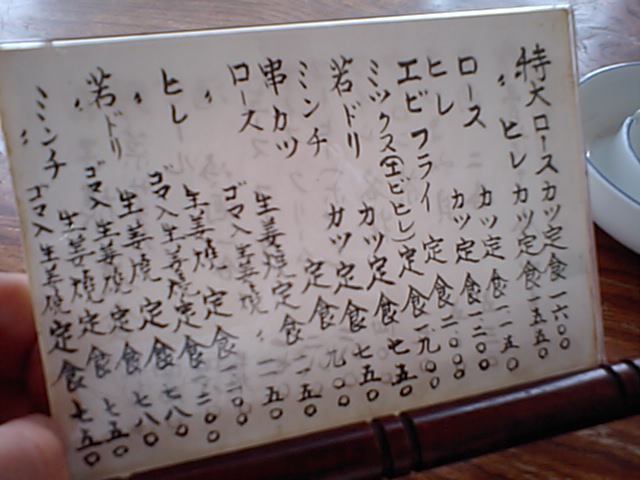 特大ロースカツ定食一六〇〇
〃ヒレカツ定食一五五〇
ロースカツ定食一一五〇
ヒレカツ定食一二〇〇
エビフライ定食
ミックス(エビヒレ)定食
若ドリカツ定食七五〇
ミンチカツ定食七五〇
串カツ定食
ロース生姜焼定食一一五〇
〃ゴマ入生姜焼〃
ヒレ生姜焼定食一二〇〇
〃ゴマ入生姜焼定食一二〇〇
若ドリ生姜焼定食七八〇
〃ゴマ入生姜焼定食七八〇
ミンチ生姜焼定食七五〇
〃ゴマ入生姜焼定食七五〇